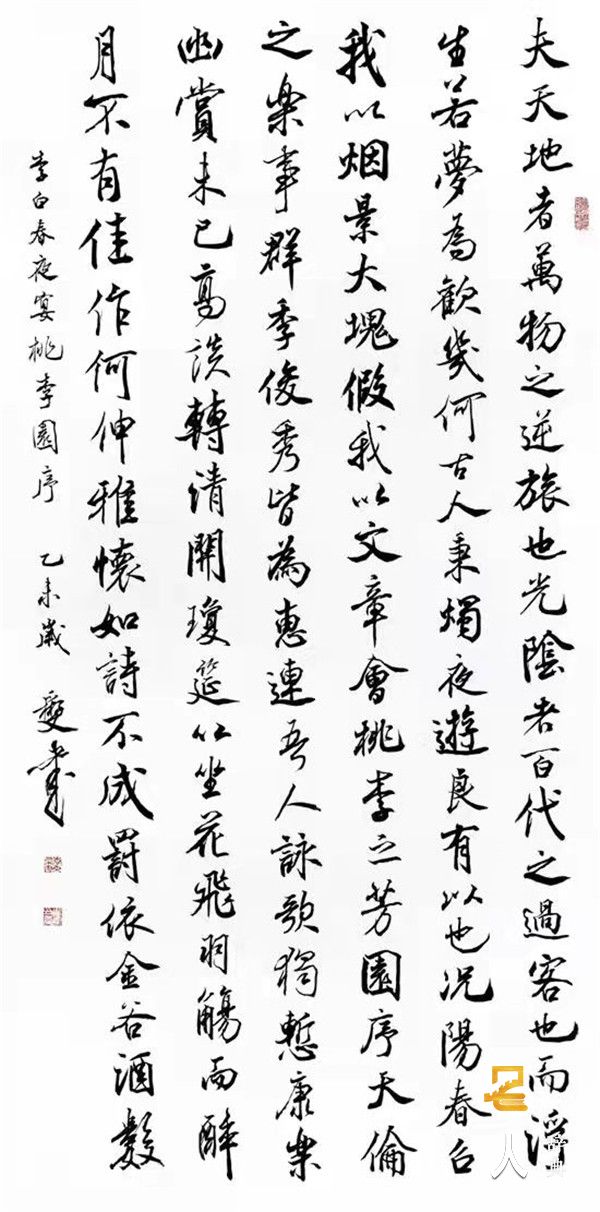 夫天地者萬物之逆旅也光陰者百代之過客也而浮
生若夢為歡幾何古人秉燭夜遊良有以也況陽春召
我以烟景大塊假我以文章會桃李之芳園序天倫
之楽事群季俊秀皆為惠連吾人詠歌獨慙康楽
幽賞未已高談轉清開瓊筵以坐花飛羽觴而醉
月不有佳作何伸雅懷如詩不成罰依金谷酒數
李白春夜宴桃李園序 乙未歲